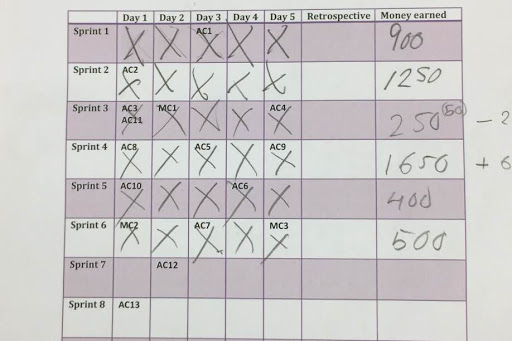 Day 1 Day 2 Day 3 Day 4 Day 5 Retrospective Money earned
Sprint 1 X X AC1 X X X 900
Sprint 2 AC2 X X X X X 1250
Sprint 3 AC3 AC11 X MC1 X X X AC4 X 250 (50) – 2
Sprint 4 AC8 X X AC5 X X AC9 X 1650 + 6
Sprint 5 AC10 X X X AC6 X X 400
Sprint 6 MC2 X X AC7 X X MC3 X 500
Sprint 7 AC12
Sprint 8 AC13